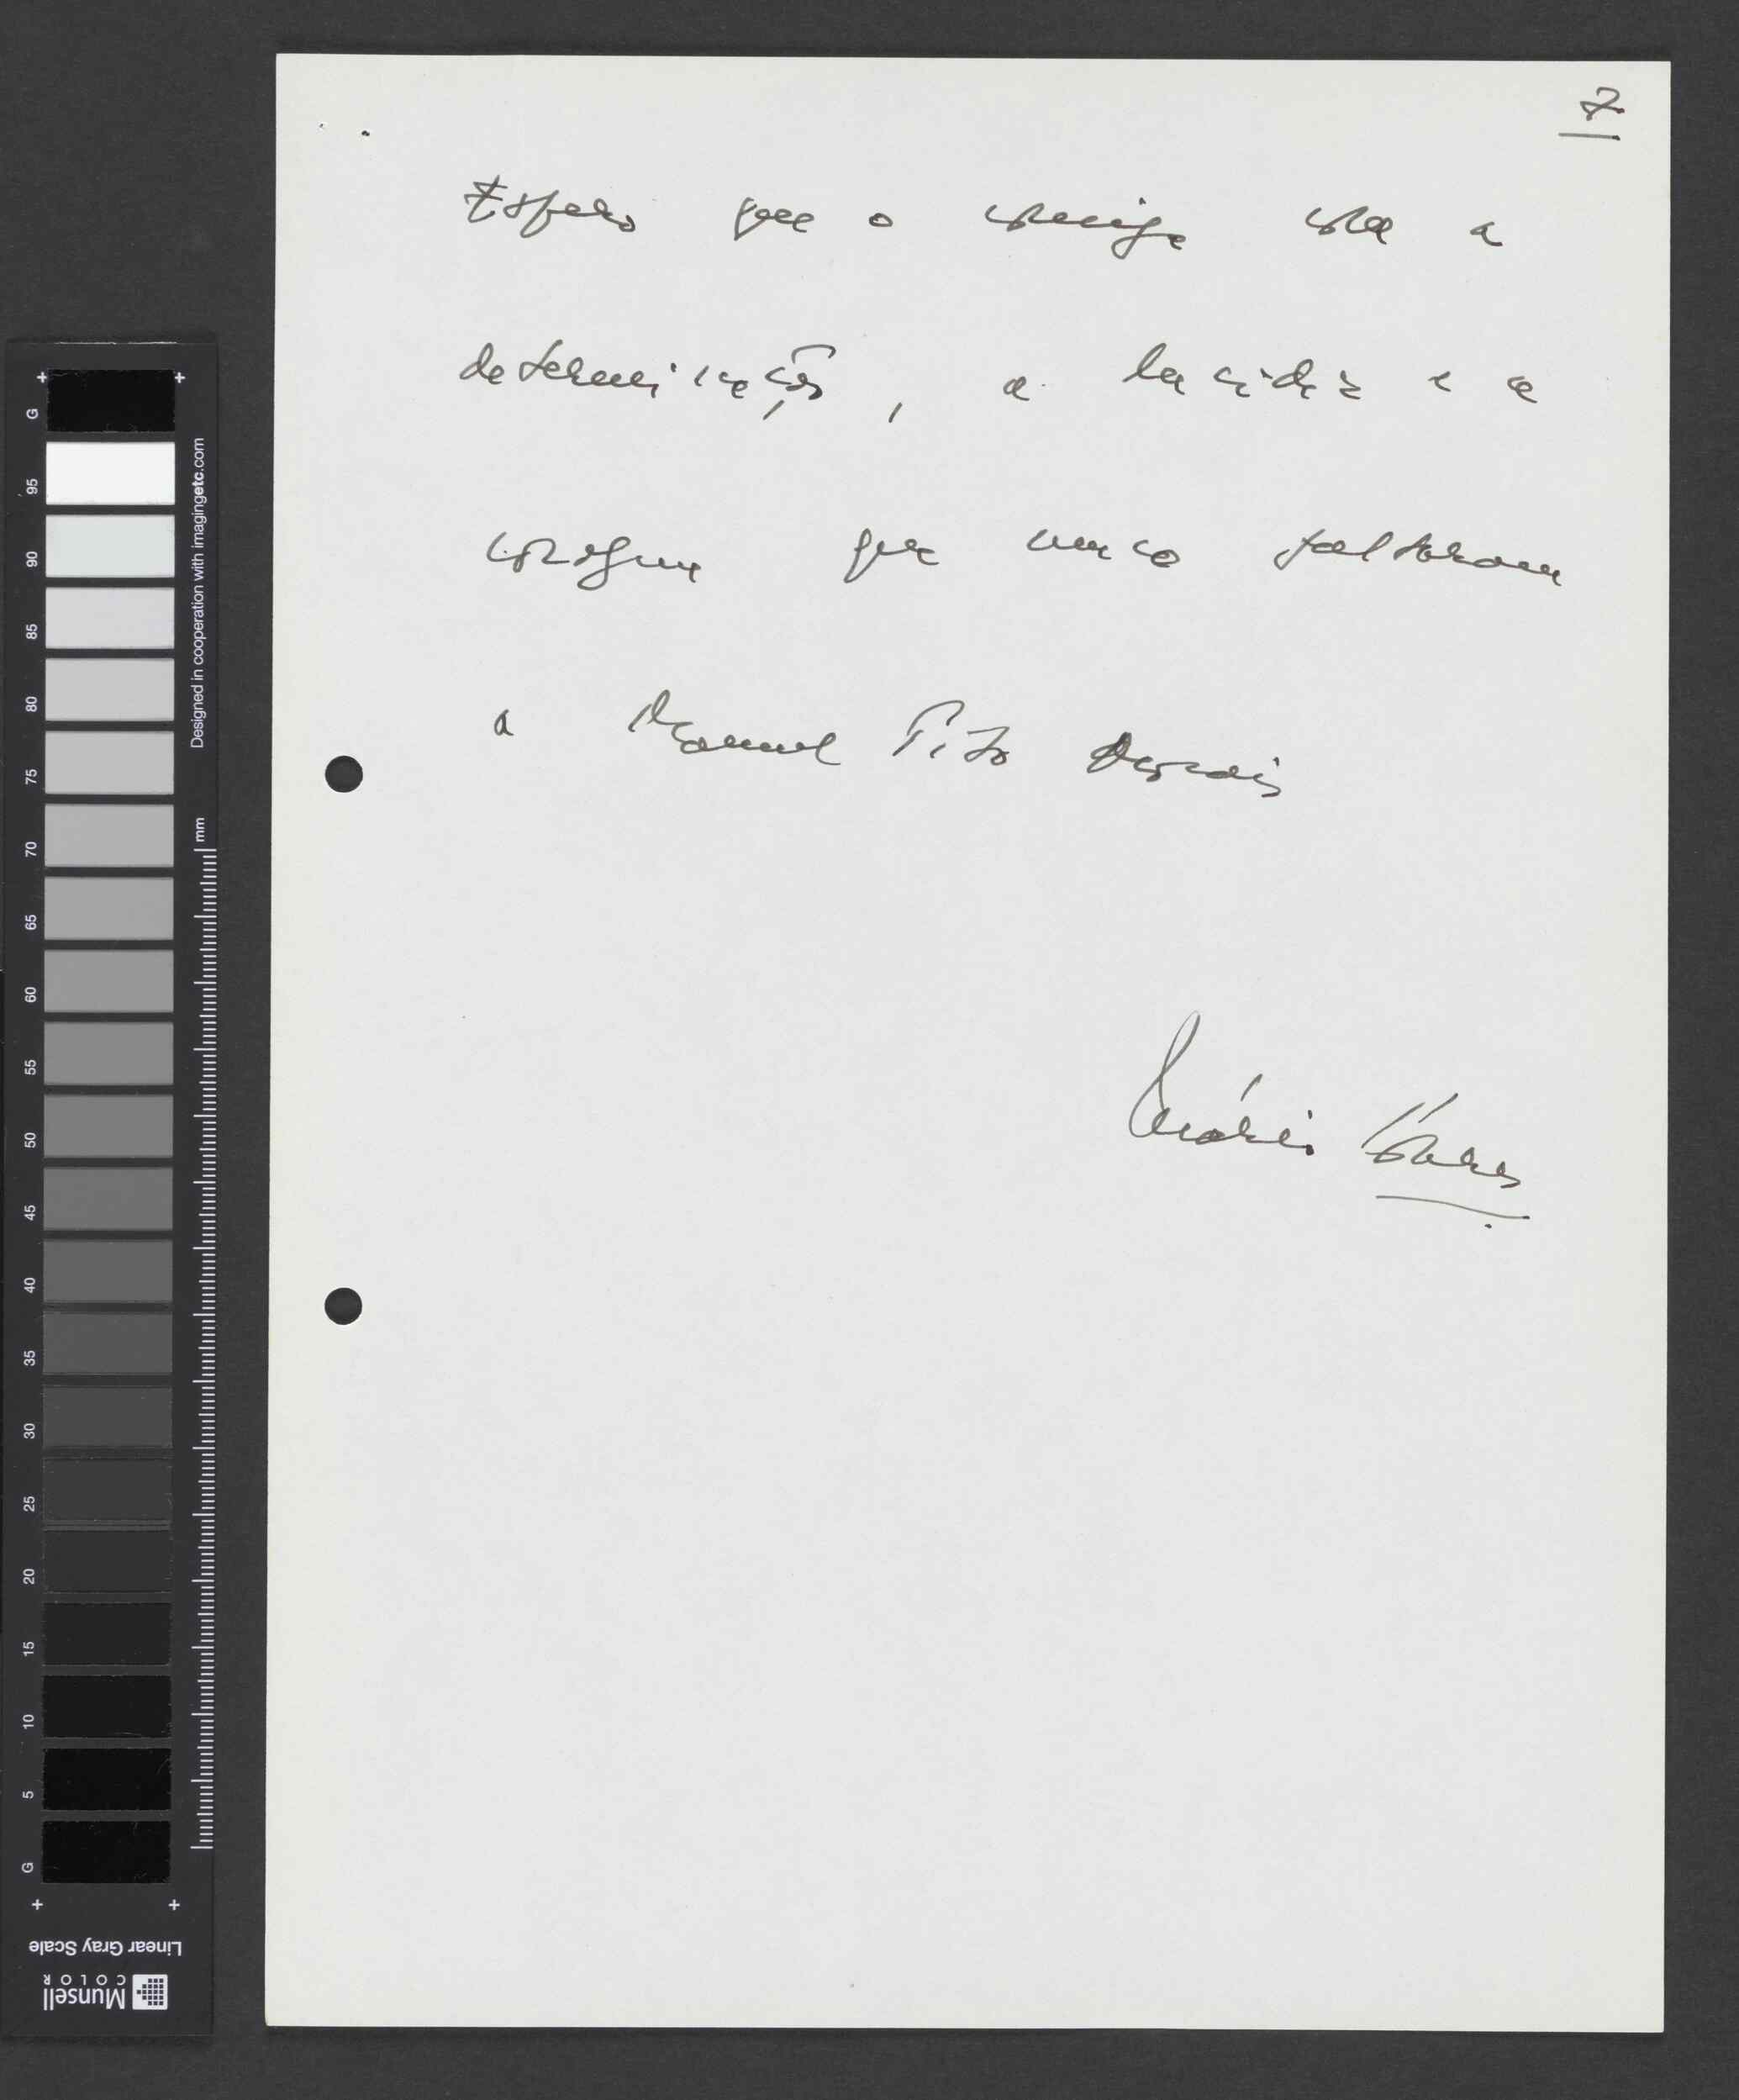 7
Espero que o consiga com a
determinação, a lucidez e a
coragem que nunca faltaram
a Manuel Tito Morais
Mário Soares
G
95
90
85
80
75
70
65
60
55
50
45
40
35
30
25
20
15
10
5
G
Designed in cooperation with imagingetc.com
mm
Linear Gray Scale
Munsell
COLOR